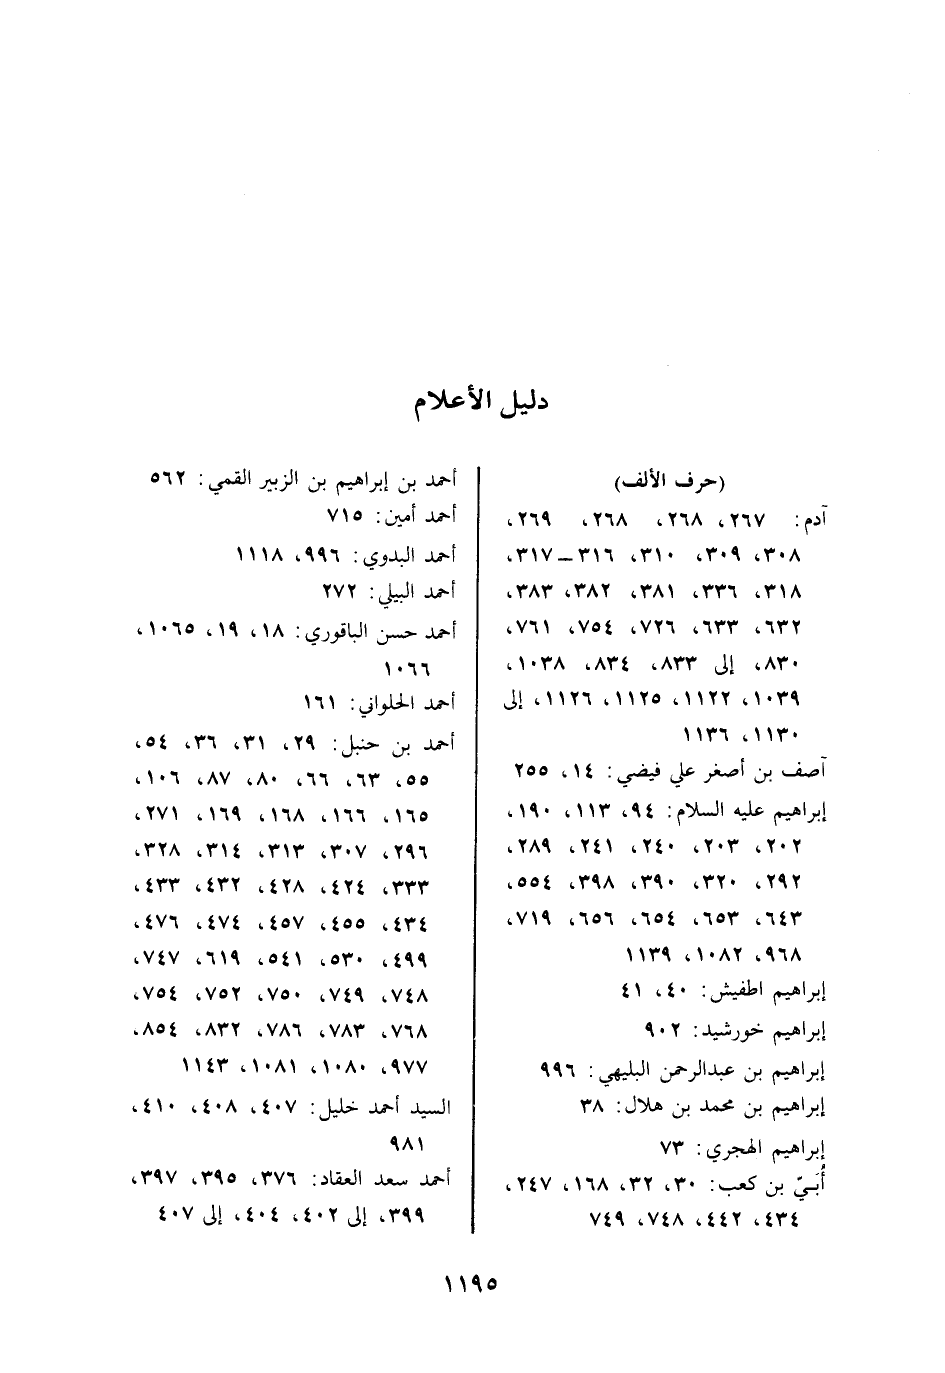 دليل الأعلام
(حرف الألف)
آدم: ٢٦٧، ٢٦٨، ٢٦٨، ٢٦٩،
٣٠٨، ٣٠٩، ٣١٠، ٣١٦ـ٣١٧،
٣١٨، ٣٣٦، ٣٨١، ٣٨٢، ٣٨٣،
٦٣٢، ٦٣٣، ٧٢٦، ٧٥٤، ٧٦١،
٨٣٠، إلى ٨٣٣، ٨٣٤، ١٠٣٨،
١٠٣٩، ١١٢٢، ١١٢٥، ١١٢٦، إلى
١١٣٠، ١١٣٦
آصف بن أصغر علي فيضي: ١٤، ٢٥٥
إبراهيم عليه السلام: ٩٤، ١١٣، ١٩٠،
٢٠٢، ٢٠٣، ٢٤٠، ٢٤١، ٢٨٩،
٢٩٢، ٣٢٠، ٣٩٠، ٣٩٨، ٥٥٤،
٦٤٣، ٦٥٣، ٦٥٤، ٦٥٦، ٧١٩،
٩٦٨، ١٠٨٢، ١١٣٩
إبراهيم اطفيش: ٤٠، ٤١
إبراهيم خورشيد: ٩٠٢
إبراهيم بن عبدالرحمن البليهي: ٩٩٦
إبراهيم بن محمد بن هلال: ٣٨
إبراهيم الهجري: ٧٣
أُبَيّ بن كعب: ٣٠، ٣٢، ١٦٨، ٢٤٧،
٤٣٤، ٤٤٢، ٧٤٨، ٧٤٩
أحمد بن إبراهيم بن الزبير القمي: ٥٦٢
أحمد أمين: ٧١٥
أحمد البدوي: ٩٩٦، ١١١٨
أحمد البيلي: ٢٧٢
أحمد حسن الباقوري: ١٨، ١٩، ١٠٦٥،
١٠٦٦
أحمد الحلواني: ١٦١
أحمد بن حنبل: ٢٩، ٣١، ٣٦، ٥٤،
٥٥، ٦٣، ٦٦، ٨٠، ٨٧، ١٠٦،
١٦٥، ١٦٦، ١٦٨، ١٦٩، ٢٧١،
٢٩٦، ٣٠٧، ٣١٣، ٣١٤، ٣٢٨،
٣٣٣، ٤٢٤، ٤٢٨، ٤٣٢، ٤٣٣،
٤٣٤، ٤٥٥، ٤٥٧، ٤٧٤، ٤٧٦،
٤٩٩، ٥٣٠، ٥٤١، ٦١٩، ٧٤٧،
٧٤٨، ٧٤٩، ٧٥٠، ٧٥٢، ٧٥٤،
٧٦٨، ٧٨٣، ٧٨٦، ٨٣٢، ٨٥٤،
٩٧٧، ١٠٨٠، ١٠٨١، ١١٤٣
السيد أحمد خليل: ٤٠٧، ٤٠٨، ٤١٠،
٩٨١
أحمد سعد العقاد: ٣٧٦، ٣٩٥، ٣٩٧،
٣٩٩، إلى ٤٠٢، ٤٠٤، إلى ٤٠٧
١١٩٥